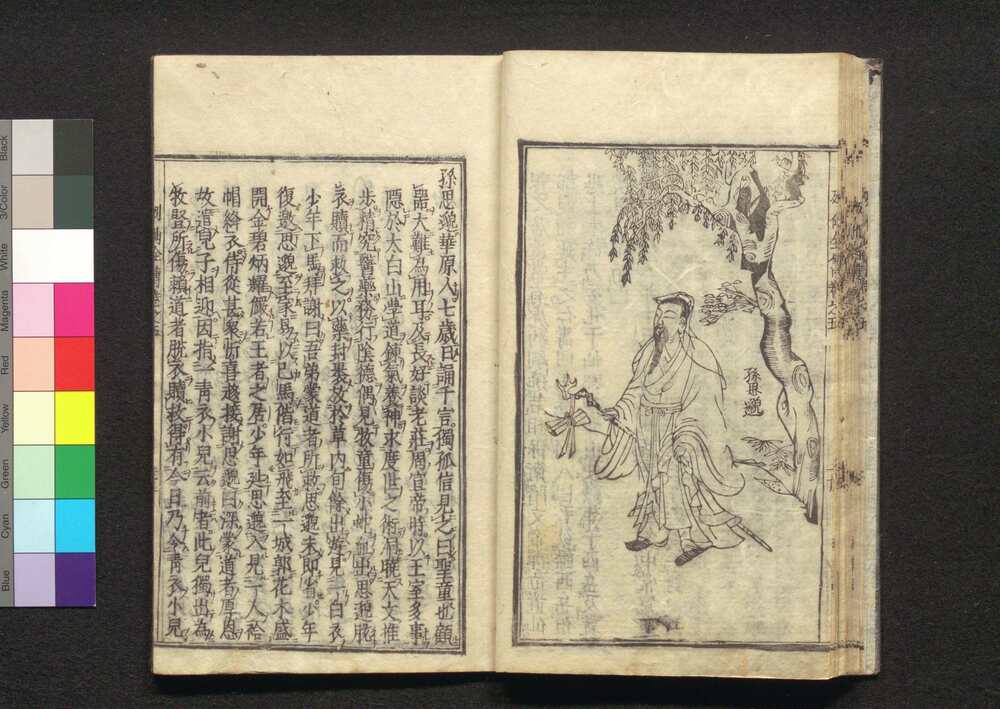 孫思邈
孫思邈華原人七歲日誦千言獨孤信見之曰聖童也顧
器大難為用耳及長好談老莊周宣帝時以王室多事
隱於太白山學道鍊氣養神求度世之術洞曉天文推
步精究醫藥務行陰德偶見牧童傷小蛇血出思邈脫
衣贖而救之以藥封裹放於草内旬餘出遊見一白衣
少年下馬拜謝曰吾弟蒙道者所救思邈未即省少年
復邀思邈至家易以己馬偕行如飛至一城郭花木盛
開金碧炳耀儼若王者之居少年延思邈入見一人袷
帽絳衣侍從甚衆忻喜趨接謝思邈曰深蒙道者厚恩
故遣兒子相迎因指一青衣小兒云前者此兒獨出為
牧豎所傷賴道者脫衣贖救得有今日乃令青衣小兒
Black
3/Color
White
Magenta
Red
Yellow
Green
Cyan
Blue